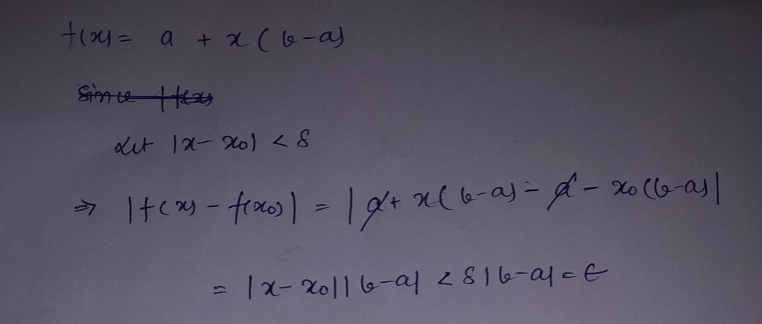 f(x) = a + x(b-a)
Since f(x)
Let |x-x₀| < δ
⇒ |f(x) - f(x₀)| = |a + x(b-a) - a - x₀(b-a)|
= |x-x₀||b-a| < δ|b-a| = ε